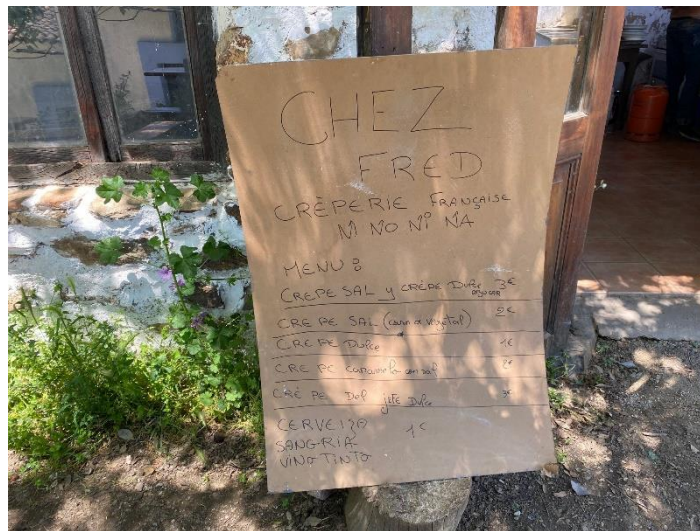 CHEZ
FRED
CRÈPERIE FRANÇAISE
NI NO NI NA
MENU :
CREPE SAL y CRÈPE Dulce 3€
CREPE SAL (carne o vegetal) 2€
CREPE Dulce 1€
CREPE caramelo con sal 2€
CRÉPE Del jefe Dulce 3€
CERVEZA
SANGRIA 1€
VINO TINTO